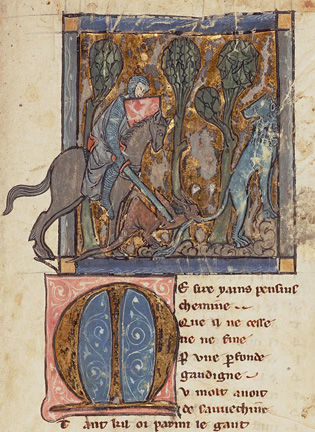 M E sire yuains pensius
chemine
Que il ne cesse
ne ne fine
P vne pfonde
gaudigne
V molt auoit
de sauuechine
T ant kil oi parmi le gaut